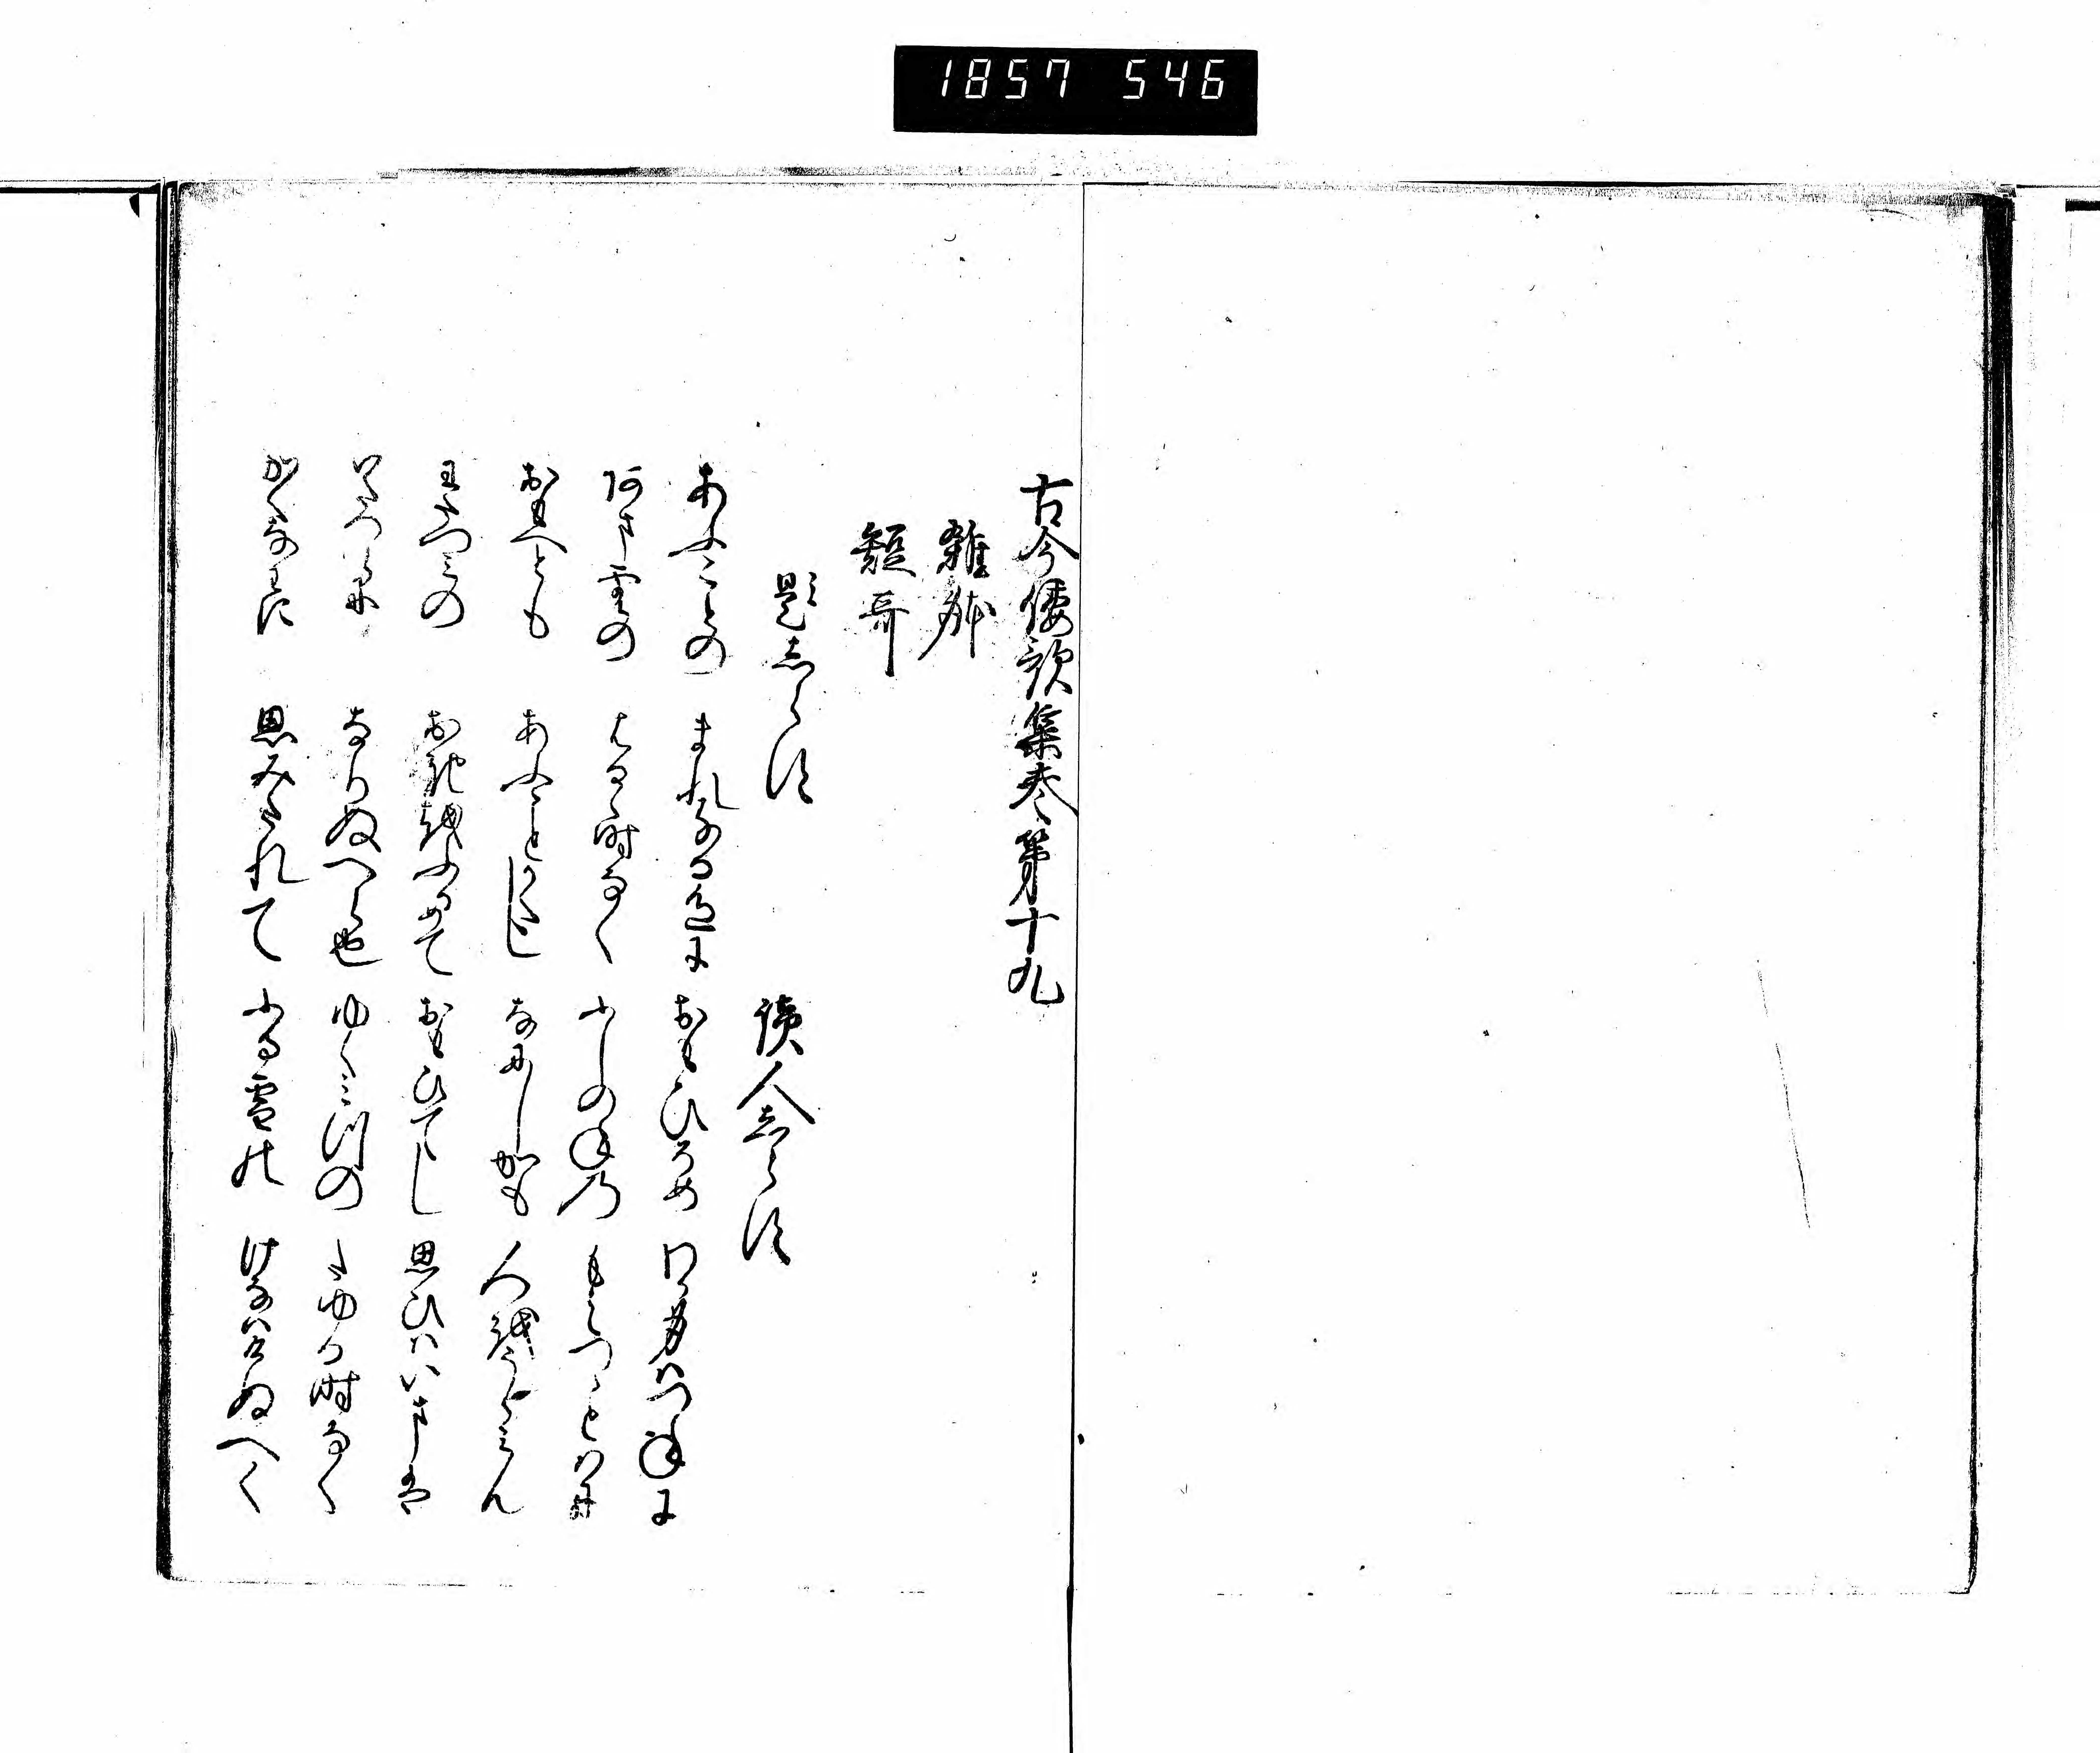 1857 546
古今倭歌集巻第十九
雑躰
短哥
題しらす
読人しらす
あふことの まれなる色に おもひそめ わか身はつねに
あま雲の はるゝ時なく ふしのねの もえつゝとはに
おもへとも あふことかたし なにしかも 人をうらみん
わたつみの おきをふかめて おもひてし 思ひはいまは
いたつらに なりぬへら也 ゆくみつの たゆる時なく
かくなわに 思みたれて ふる雪の けなはけぬへく